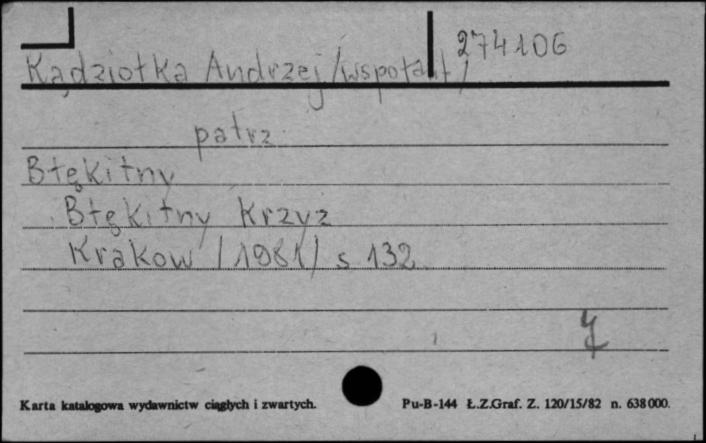 274106
Kądziołka Andrzej /współaut/
patrz
Błękitny
Błękitny Krzyż
Krakow /1981/ s 132
Karta katalogowa wydawnictw ciągłych i zwartych.
Pu-B-144 Ł.Z.Graf. Z. 120/15/82 n. 638000.